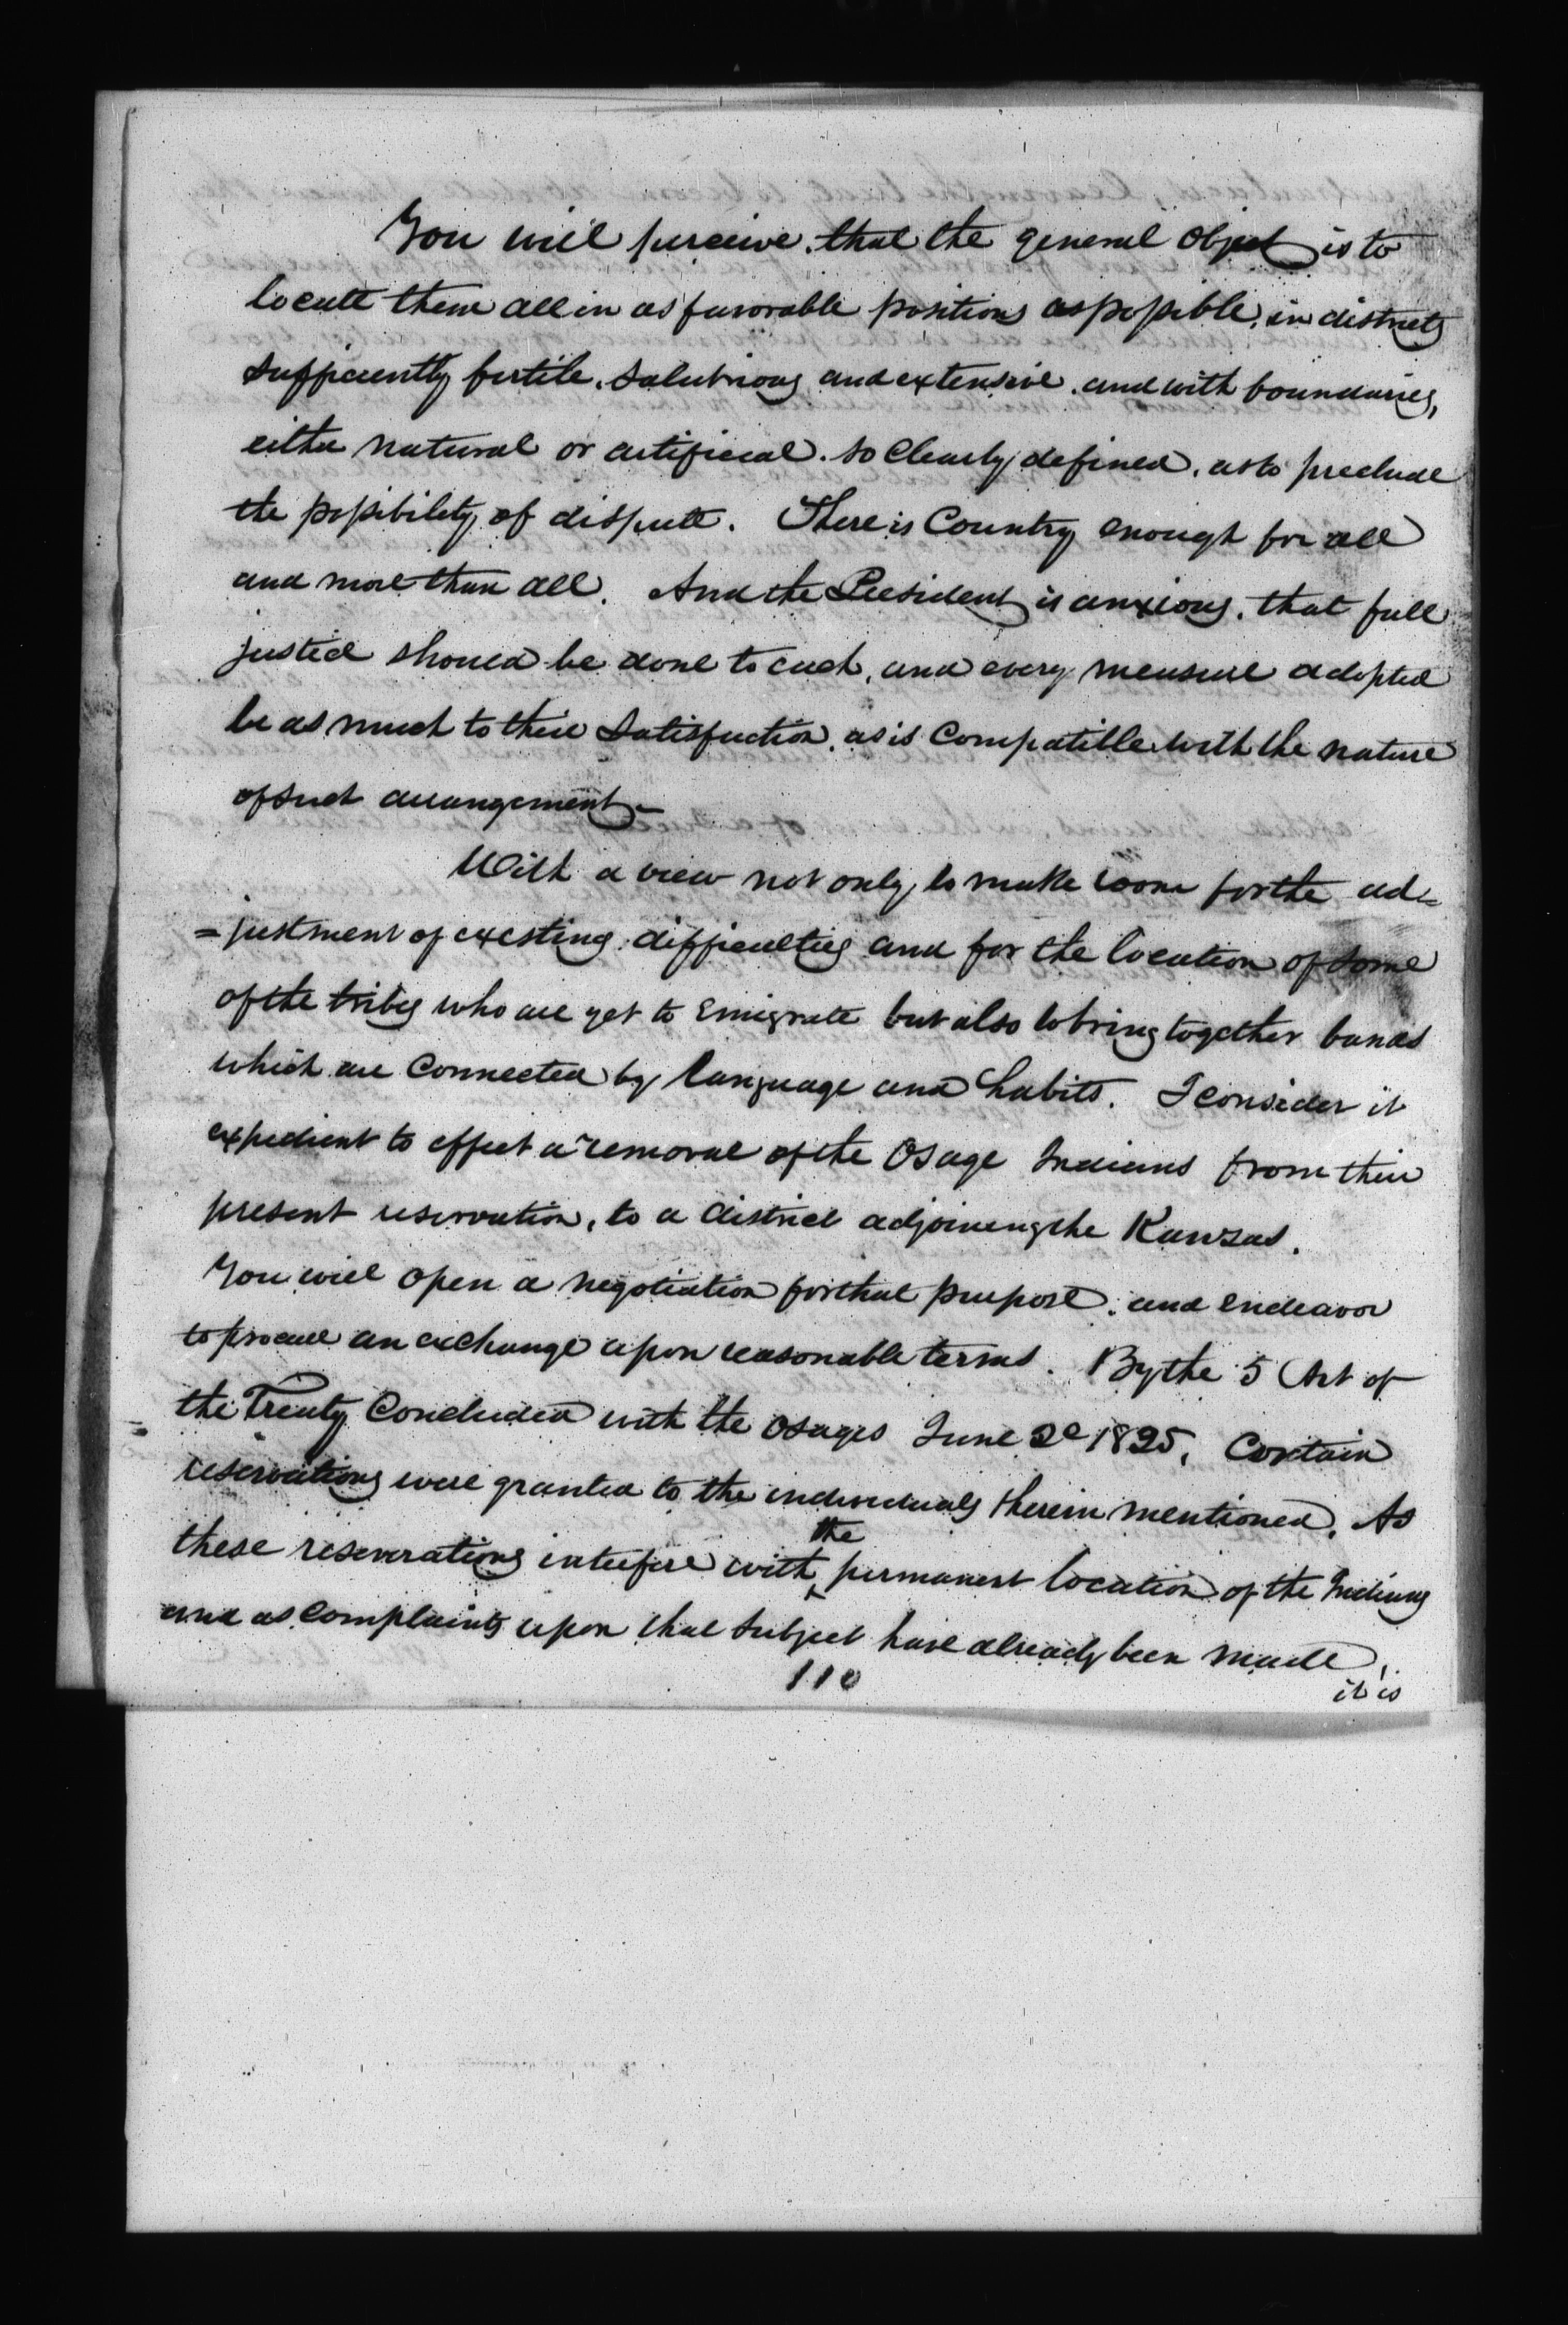 You will perceive, that the general object is to
locate them all in as favorable positions as possible, in districts
sufficiently fertile, salubrious and extensive, and with boundaries,
either natural or artificial, so clearly defined, as to preclude
the possibility of dispute. There is Country enough for all
and more than all. And the President is anxious, that full
justice should be done to each, and every measure adopted
be as much to their satisfaction, as is compatible with the nature
of such arrangement.
With a view not only to make room for the ad=
=justment of existing difficulties and for the location of some
of the tribes who are yet to emigrate but also to bring together bands
which are connected by language and habits. I consider it
expedient to effect a removal of the Osage Indians from their
present reservation, to a district adjoining the Kanzas.
You will open a negotiation for that purpose, and endeavor
to procure an exchange upon reasonable terms. By the 5 Art of
the Treaty Concluded with the Osages June 2d 1825, Certain
reservations were granted to the individuals therein mentioned. As
these reserverations interfere with the permanent location of the Indians
and as complaints upon that subject have already been made,
110
it is